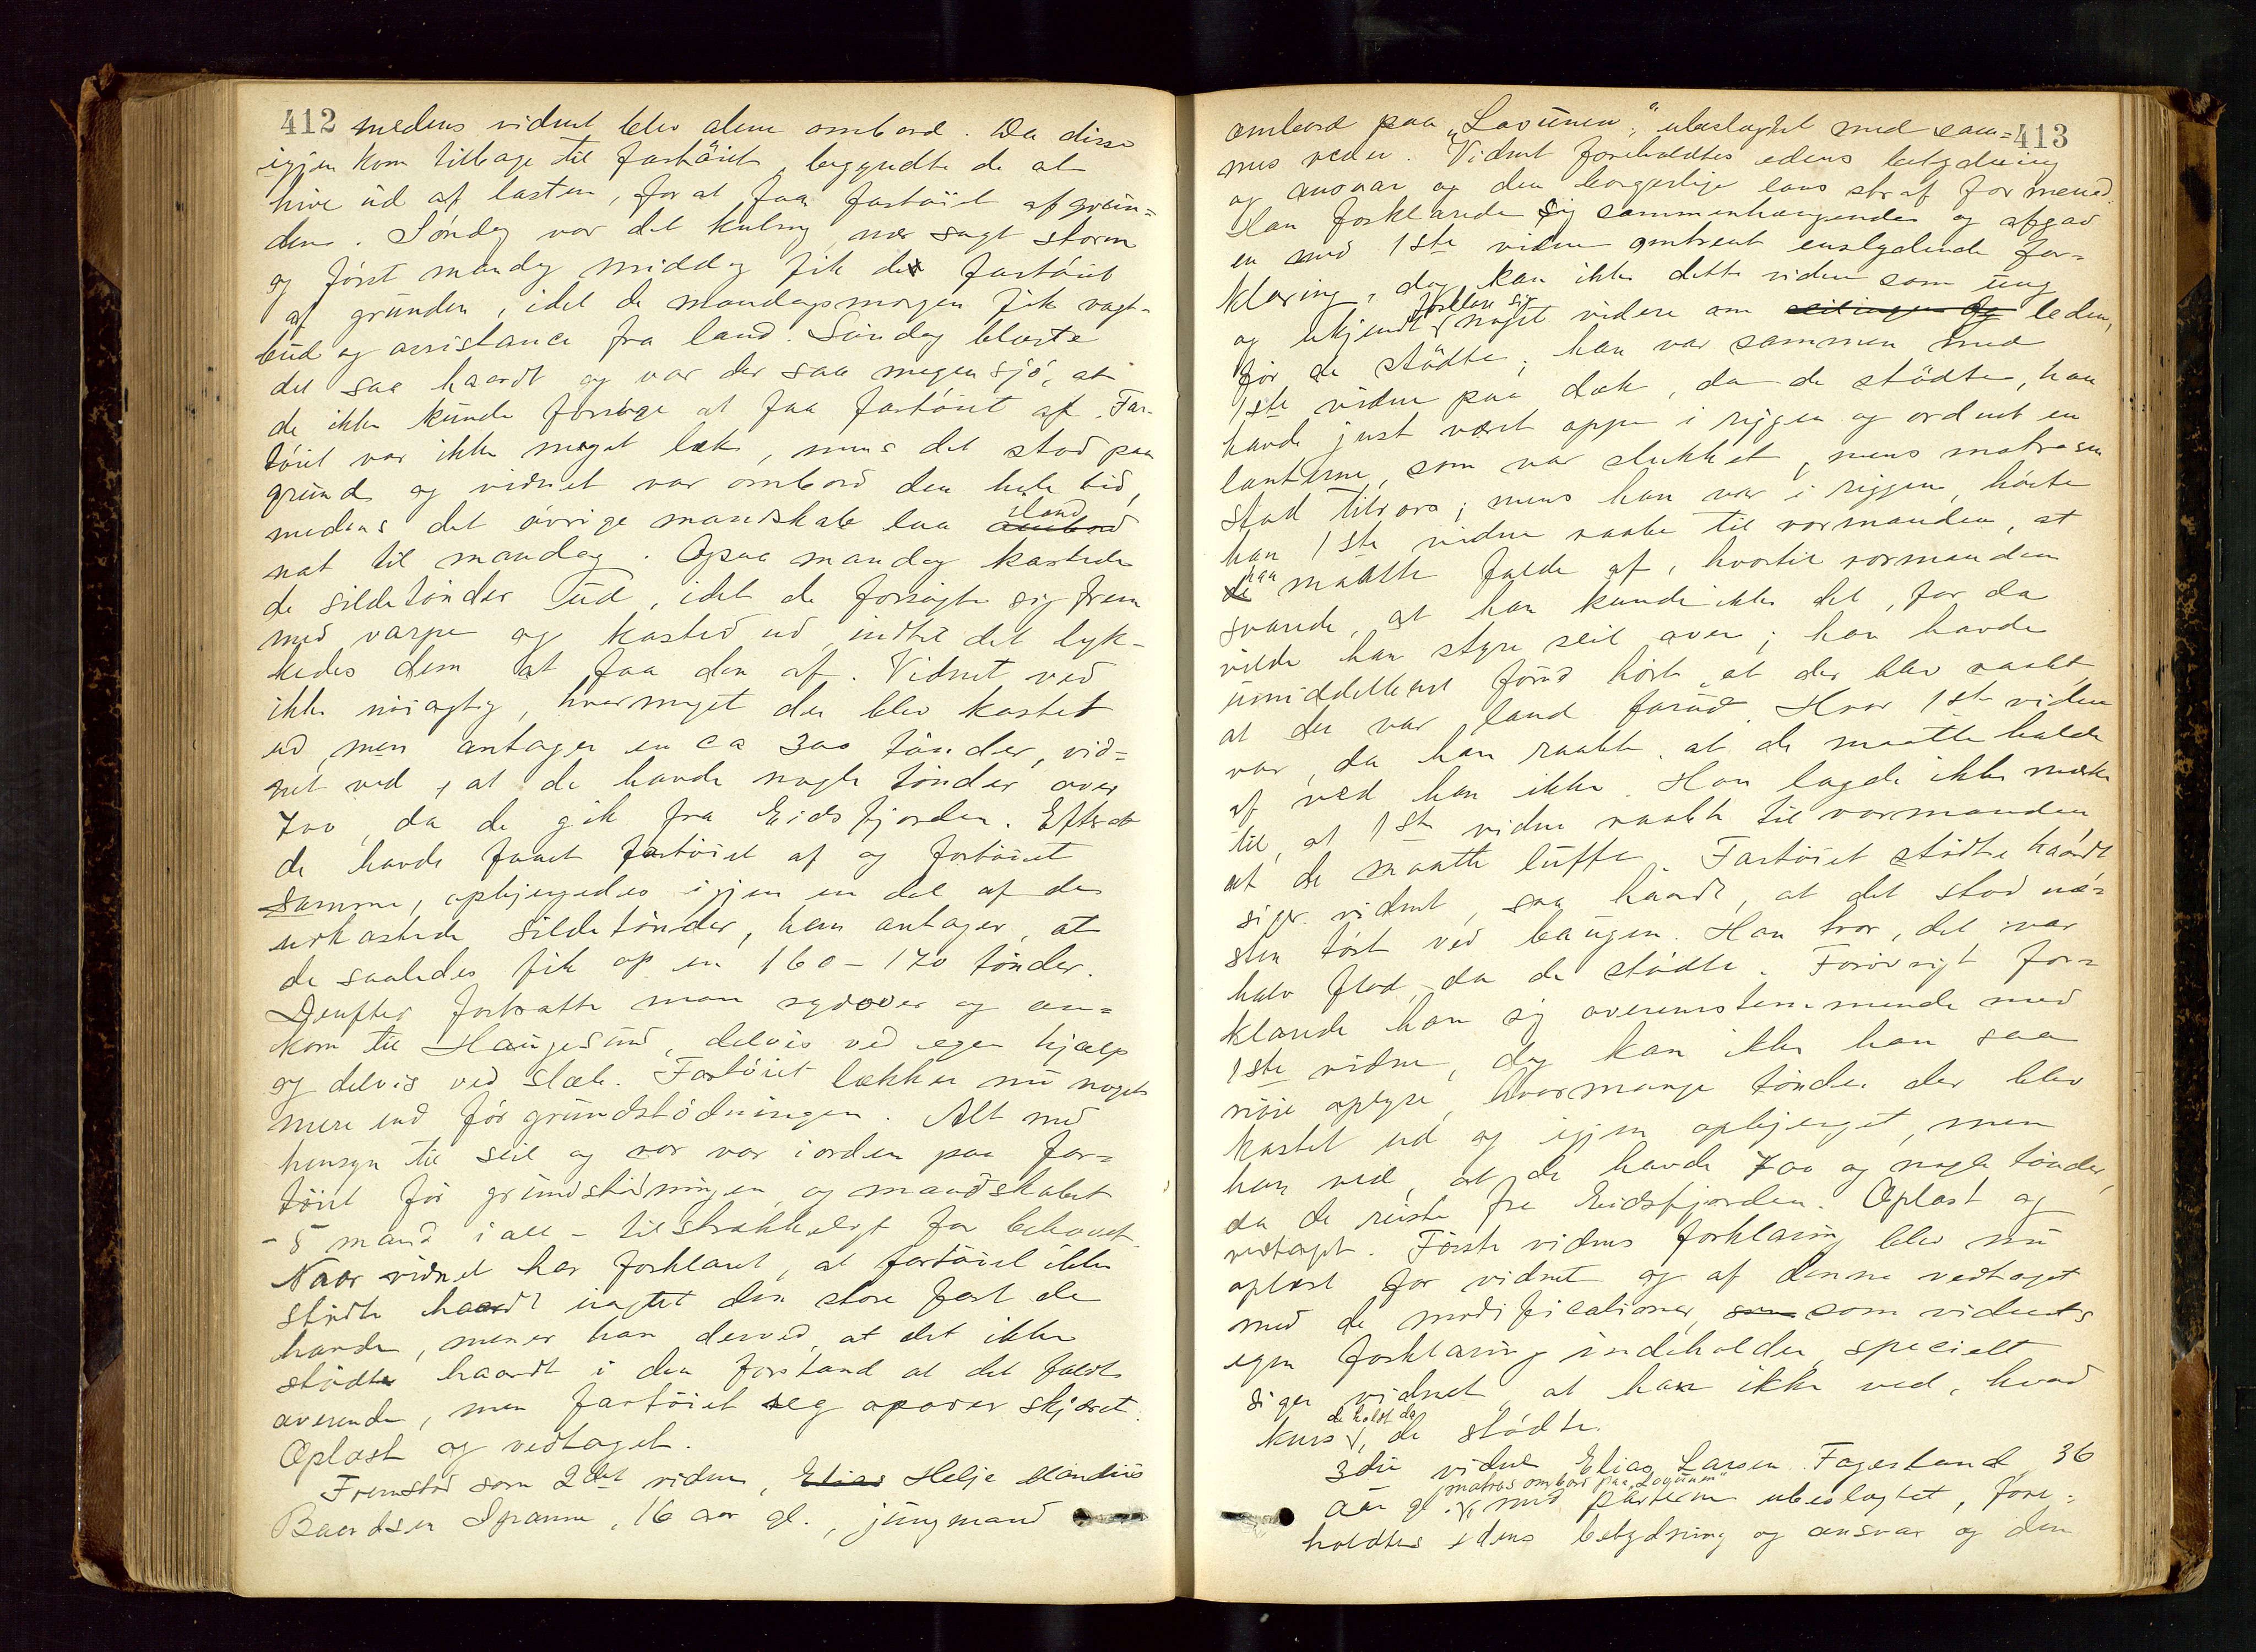 412
medens vidnet blev alene ombord. Da disse
igjen kom tilbage til fartöiet, begyndte de at
hive ud af lasten, for at faa fartöiet af grün=
den. Söndag var det kuling, nær sagt storm
og först mandag middag fik de fartöiet
af gründen, idet de mandagsmorgen fik vagt-
bud og assistance fra land. Söndag blæste
det saa haardt og var der saa megen sjö, at
de ikke kunde forsöge at faa fartöiet af. Far-
töiet var ikke meget læk, mens det stod paa
gründ og vidnet var ombord den hele tid,
medens det övrige mandskab laa iland
nat til mandag. Ogsaa mandag kastede
de sildetönder ud, idet de forsögte sig frem
med varpe og kasted ud indtil det lyk-
kedes dem at faa den af. Vidnet ved
ikke nöiagtig, hvormeget der blev kastet
ud, men antager en ca 300 tönder, vid=
net ved, at de havde nogle tönder over
700, da de gik fra Eidsfjorden. Efterat
de havde faaet fartöiet af og fortöiet
samme, opbjergedes igjen en del af de
udkastede sildetönder, han antager, at
de saaledes fik op en 160 - 170 tönder.
Derefter fortsatte man sydover og an=
kom til Haugesund, delvis ved egen hjælp
og delvis ved slæb. Fartöiet lækker nu noget
mere end för gründstödningen. Alt med
hensyn til seil og ror var iorden paa far=
töiet för gründstödningen, og mandskabet
- 5 mand i alt - tilstrækkeligt for behovet.
Naar vidnet har forklaret, at fartöiet ikke
stödte haardt uagtet den store fart de
havde, mener han derved, at det ikke
stödte haardt i den forstand at det faldt
overende, men fartöiet seg opover skjæret.
Oplæst og vedtaget.
Fremstod som 2det vidne, Elias Helje Mandius
Baardsen Spanne, 16 aar gl., jüngmand
413
ombord paa "Lovünen", ubeslægtet med sam=
mes reder. Vidnet foreholdtes edens betydning
og ansvar og den borgerlige lovs straf for mened.
Han forklarede sig sammenhængende og afgav
en med 1ste vidne omtrent enslydende for=
klaring, dog kan ikke dette vidne som üng
og ukjendt forklare sig noget videre om seilingen og leden,
för de stödte; han var sammen med
1ste vidne paa dæk, da de stödte, han
havde just været oppe i riggen og ordnet en
lanterne, som var slukket, mens matrosen
stod tilrors; mens han var i riggen, hörte
han 1ste vidne raabe til rormanden, at
han maatte falde af, hvortil rormanden
svarede, at han kunde ikke det, for da
vilde han styre seil over; han havde
ümiddelbart förud hört, at der blev raabt,
at der var land forüd. Hvor 1ste vidne
var, da han raabte, at de maatte holde
af ved han ikke. Han lagde ikke mærke
til, at 1ste vidne raabte til rormanden,
at de maatte lüffe. Fartöiet stödte haardt
siger vidnet, saa haardt, at det stod næ=
sten tört ved baugen. Han tror, det var
halv flod, da de stödte. Forövrigt for=
klarede han sig overensstemmende med
1ste vidne, dog kan ikke han saa
nöie oplyse, hvormange tönder der blev
kastet ud og igjen opbjerget, men
han ved, at de havde 700 og nogle tönder,
da de reiste fra Eidsfjorden. Oplæst og
vedtaget. Förste vidnes forklaring blev nu
oplæst for vidnet og af denne vedtaget
med de modificationer, som som vidnets
egen forklaring indeholder, specielt
siger vidnet, at han ikke ved, hvad
kurs de holdt da de stödte.
3die vidne Elias Larsen Fagerland, 36
aar gl. matros ombord paa "Lovünen" med parterne ubeslægtet, fore=
holdtes edens betydning og ansvar og den